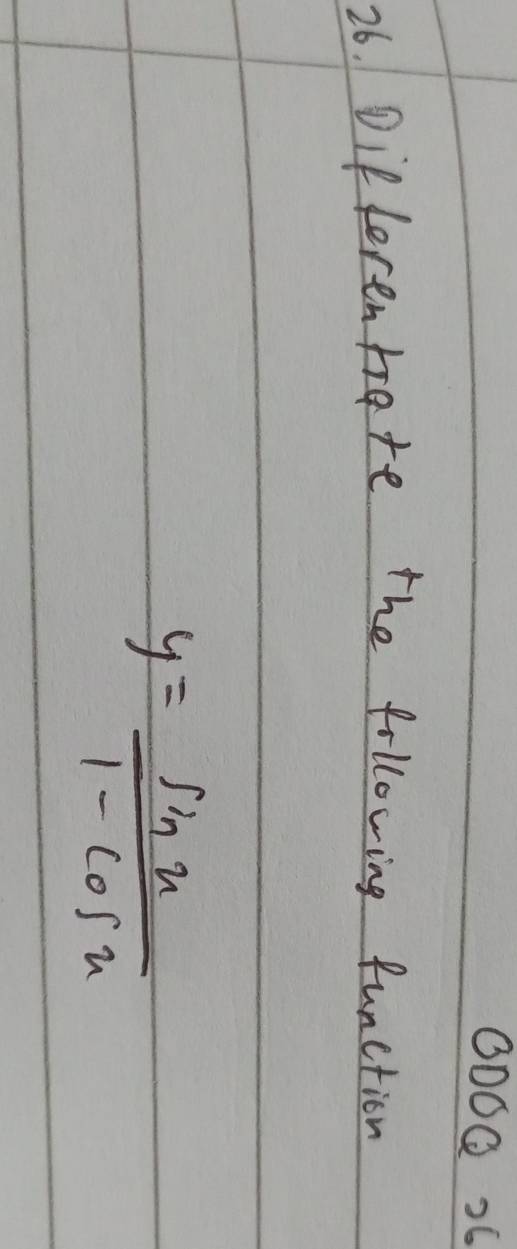 QDOQ 26
26. Differentiate the following function
y = sin x
1 - cos x